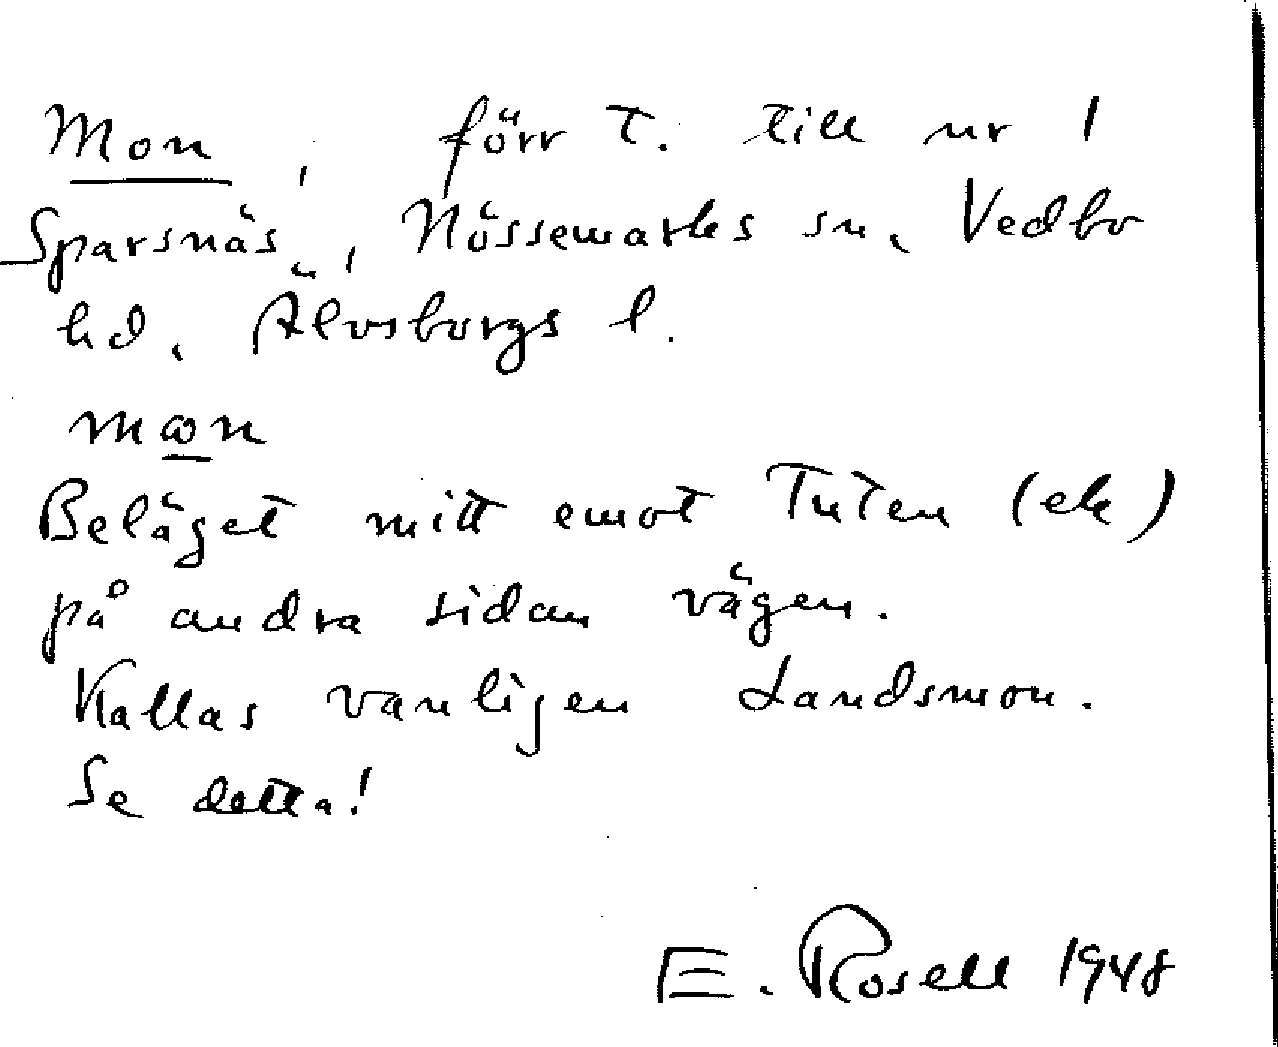 Mon, förr T. till nr 1
Sparsnäs, Nössemarks sn, Vedbo
hd, Älvsborgs l.
mꝏn
Beläget mitt emot Tuten (ek)
på andra sidan vägen.
Kallas vanligen Landsmon.
Se detta!
E. Rosell 1948